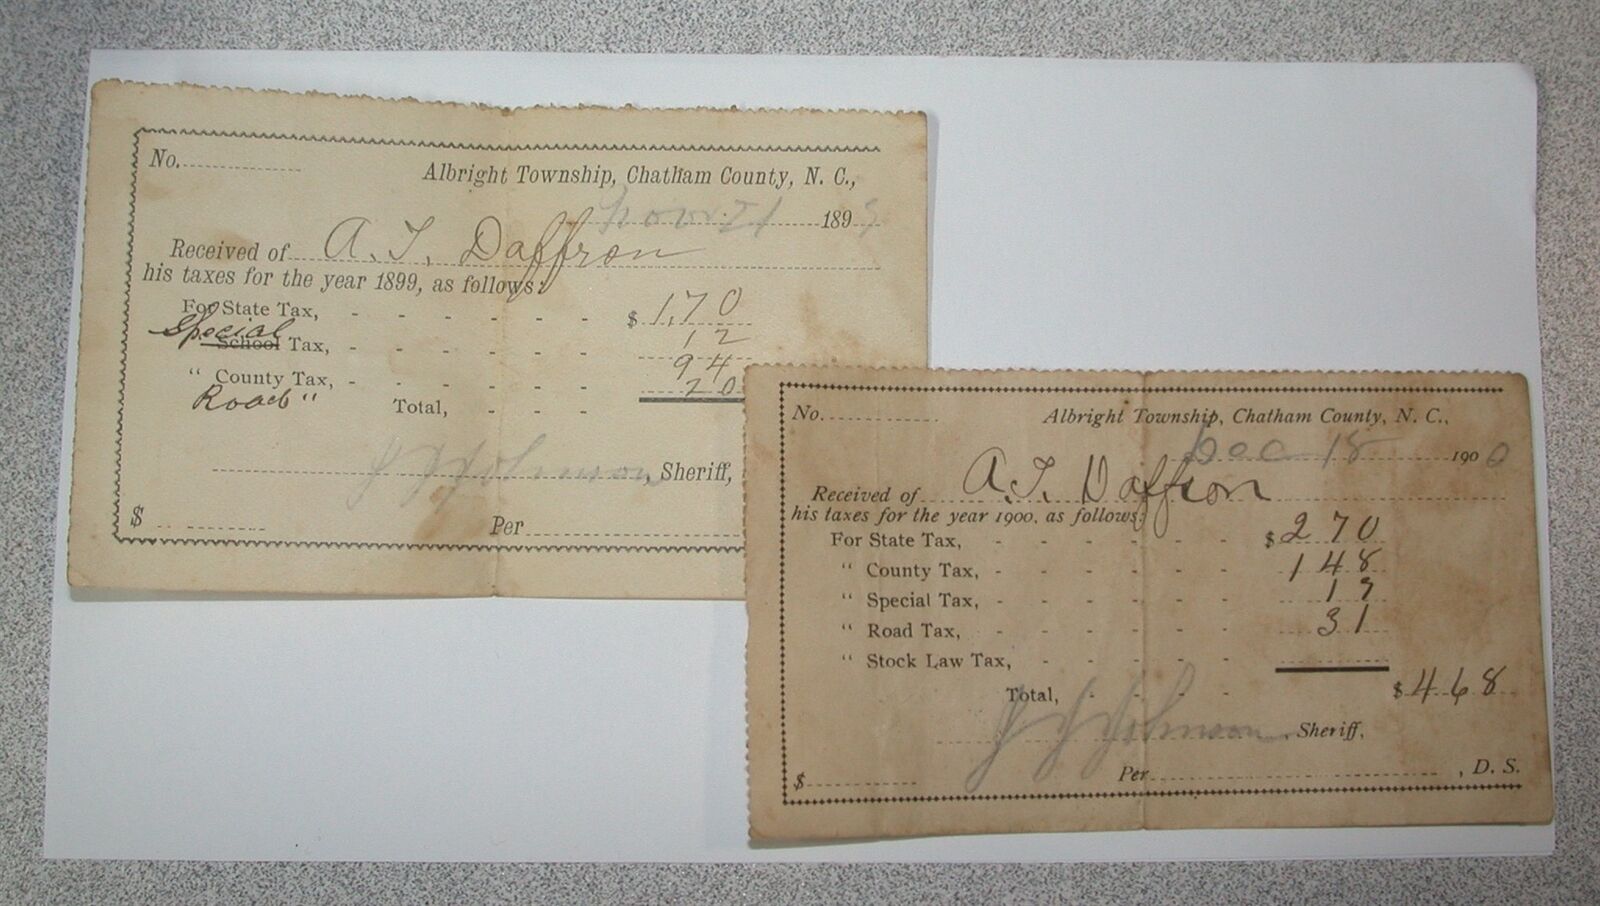 No.
Albright Township, Chatham County, N. C.,
Nov. 21 1899
Received of A. T. Daffron
his taxes for the year 1899, as follows:
For State Tax, - - - - - - $ 1.70
Special School Tax, - - - - - - 12
" County Tax, - - - - - - 94
Road " 20
Total, - - -
J J Johnson, Sheriff,
$
Per
No.
Albright Township, Chatham County, N. C.,
Dec 18 1900
Received of A. T. Daffron
his taxes for the year 1900, as follows:
For State Tax, - - - - - - $ 2 70
" County Tax, - - - - - - 1 48
" Special Tax, - - - - - - 19
" Road Tax, - - - - - - 31
" Stock Law Tax, - - - - -
Total, - - - - $ 4 68
J J Johnson, Sheriff,
$
Per , D. S.